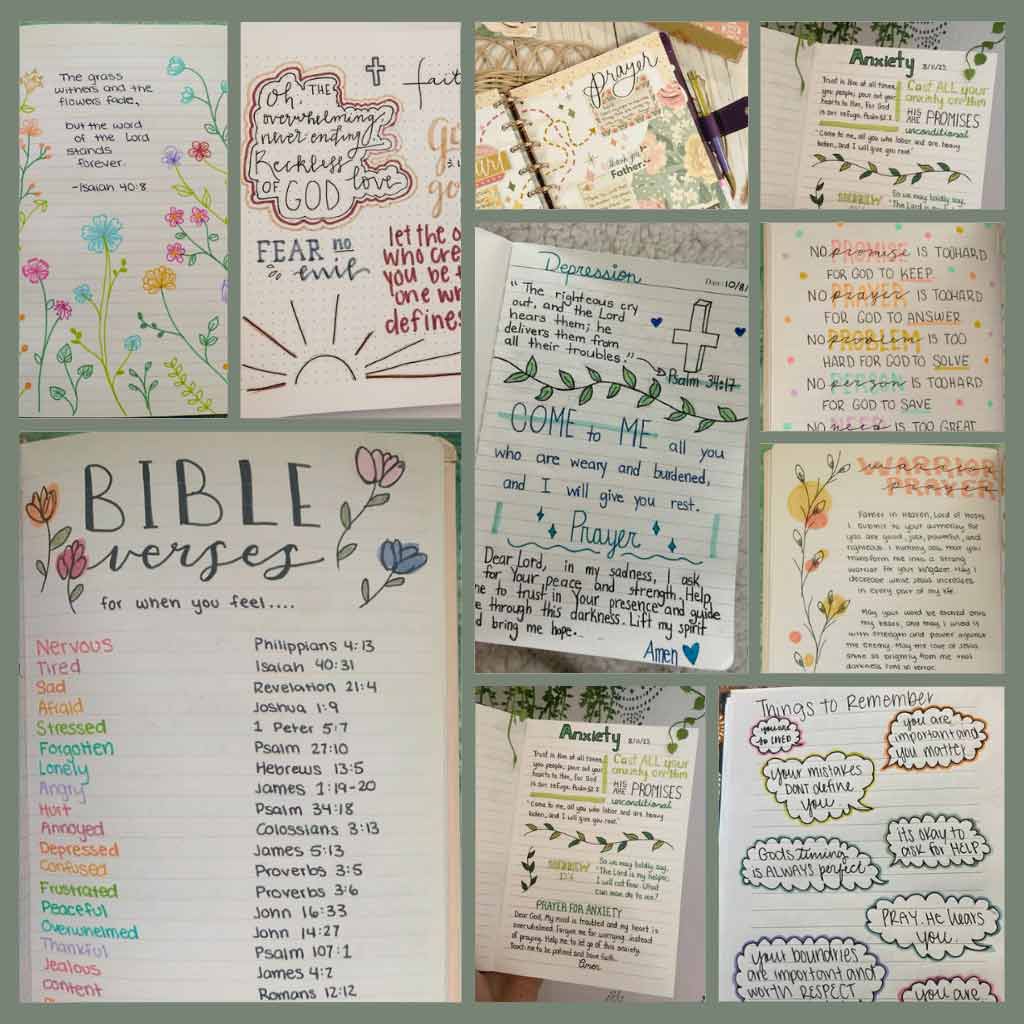 The grass
withers and the
flowers fade,
but the word
of the Lord
stands
forever.
-Isaiah 40:8
oh, THE
overwhelming
never ending
Reckless
love
OF GOD
FEAR no
evil
let the o
who cre
you be t
one wh
defines
prayer
Thank you
Father~
Anxiety
8/11/23
Trust in Him at all times,
you people; pour out your
hearts to Him, for God
is our refuge. Psalm 62:8
Cast ALL your
anxiety on Him
HIS PROMISES
ARE
unconditional
"Come to me, all you who labor and are heavy
laden, and I will give you rest."
HEBREW
So we may boldly say,
"The Lord is my helper
Depression
Date: 10/8/
"The righteous cry
out, and the Lord
hears them; he
delivers them from
all their troubles."
Psalm 34:17
COME to ME all you
who are weary and burdened,
and I will give you rest.
Prayer
Dear Lord, in my sadness, I ask
for Your peace and strength. Help
me to trust in Your presence and guide
me through this darkness. Lift my spirit
d bring me hope.
Amen
NO promise IS TOO HARD
PROMISE
FOR GOD TO KEEP
NO prayer IS TOO HARD
PRAYER
FOR GOD TO ANSWER
NO problem IS TOO
PROBLEM
HARD FOR GOD TO SOLVE
NO person IS TOO HARD
PERSON
FOR GOD TO SAVE
NO need IS TOO GREAT
NEED
WARRIOR
PRAYER
Father in Heaven, Lord of hosts
I submit to your authority for
you are good, just, powerful, and
righteous. I humbly ask that you
transform me into a strong
warrior for your kingdom. May I
decrease while Jesus increases
in every part of my life.
May your word be etched onto
my heart, and may I wield it
with strength and power against
the enemy. May the love of Jesus
shine so brightly from me that
darkness flees in terror.
BIBLE
verses
for when you feel....
Nervous Philippians 4:13
Tired Isaiah 40:31
Sad Revelation 21:4
Afraid Joshua 1:9
Stressed 1 Peter 5:7
Forgotten Psalm 27:10
Lonely Hebrews 13:5
Angry James 1:19-20
Hurt Psalm 34:18
Annoyed Colossians 3:13
Depressed James 5:13
Confused Proverbs 3:5
Frustrated Proverbs 3:6
Peaceful John 16:33
Overwhelmed John 14:27
Thankful Psalm 107:1
Jealous James 4:2
Content Romans 12:12
Anxiety
8/11/23
Trust in Him at all times,
you people; pour out your
hearts to Him, for God
is our refuge. Psalm 62:8
Cast ALL your
anxiety on Him
HIS PROMISES
ARE
unconditional
"Come to me, all you who labor and are heavy
laden, and I will give you rest."
HEBREW
13:6
So we may boldly say,
"The Lord is my helper;
I will not fear. What
can man do to me?
PRAYER FOR ANXIETY
Dear God, My mind is troubled and my heart is
overwhelmed. Forgive me for worrying instead
of praying. Help me to let go of this anxiety.
Teach me to be patient and have faith.
Amen.
Things to Remember
you are
so LOVED
you are
important and
you matter
your mistakes
DON'T define
you
its okay to
ask for HELP
Gods timing
is ALWAYS perfect
PRAY. He hears
you.
your boundries
are important and
worth RESPECT
you are